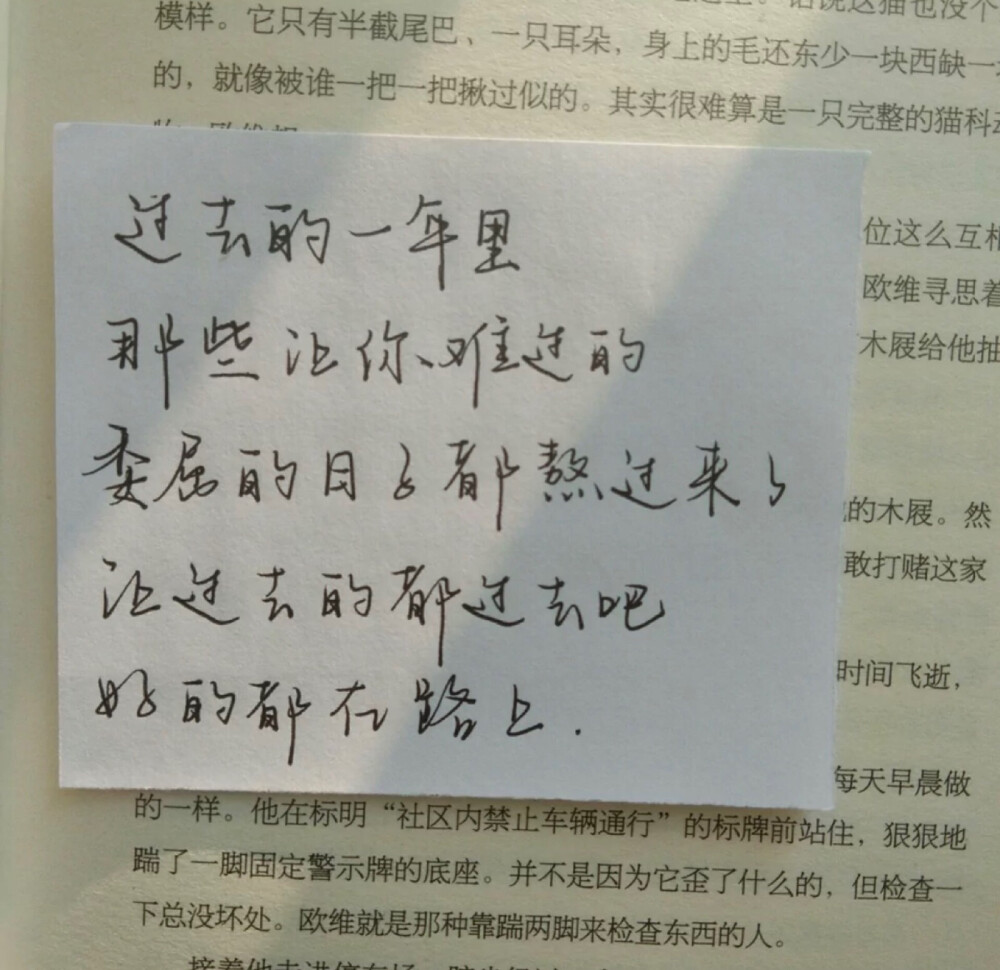 模样。它只有半截尾巴、一只耳朵，身上的毛还东少一块西缺一
的，就像被谁一把一把揪过似的。其实很难算是一只完整的猫科动
过去的一年里
位这么互相
欧维寻思着
那些让你难过的
木屐给他抽
委屈的日子都熬过来了
的木屐。然
敢打赌这家
让过去的都过去吧
时间飞逝，
好的都在路上.
每天早晨做
的一样。他在标明“社区内禁止车辆通行”的标牌前站住，狠狠地
踹了一脚固定警示牌的底座。并不是因为它歪了什么的，但检查一
下总没坏处。欧维就是那种靠踹两脚来检查东西的人。